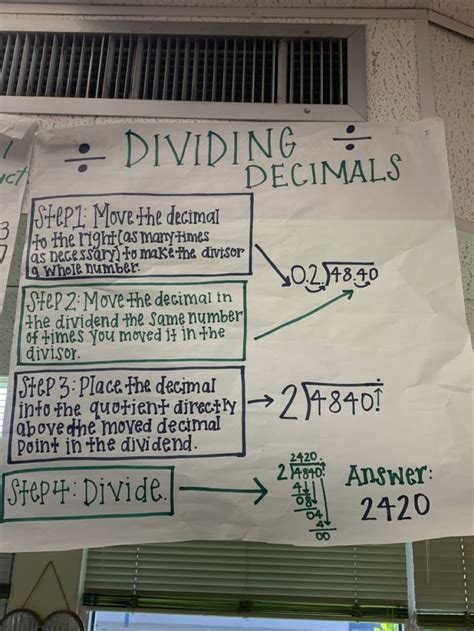 ÷ DIVIDING ÷
DECIMALS
Step 1: Move the decimal
to the right (as many times
as necessary) to make the divisor
a whole number.
0.2 48.40
Step 2: Move the decimal in
the dividend the same number
of times you moved it in the
divisor.
Step 3: Place the decimal
into the quotient directly
above the moved decimal
point in the dividend.
2 4840.
Step 4: Divide.
2420.
2 4840.
4
08
8
04
4
00
Answer:
2420